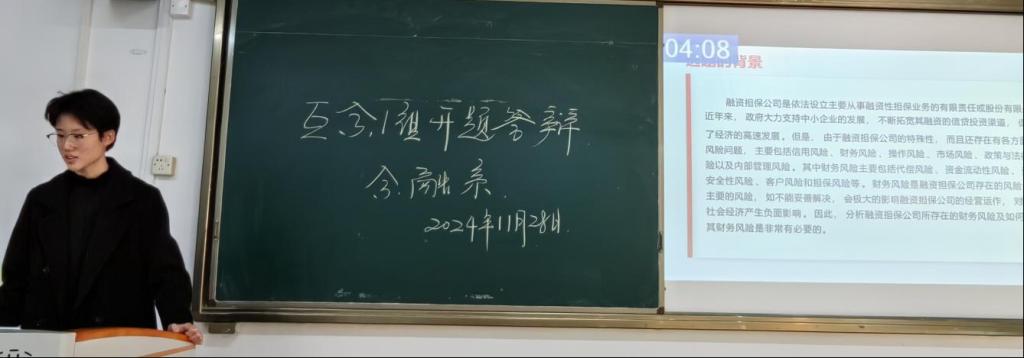 互金1组开题答辩
金融系
2024年11月28日
04:08
选题的背景
融资担保公司是依法设立主要从事融资性担保业务的有限责任或股份有限
近年来，政府大力支持中小企业的发展，不断拓宽其融资的信贷投资渠道，
了经济的高速发展。但是，由于融资担保公司的特殊性，而且还存在有各方面
风险问题，主要包括信用风险、财务风险、操作风险、市场风险、政策与法
险以及内部管理风险。其中财务风险主要包括代偿风险、资金流动性风险、
安全性风险、客户风险和担保风险等。财务风险是融资担保公司存在的风险
主要的风险，如不能妥善解决，会极大的影响融资担保公司的经营运作，对
社会经济产生负面影响。因此，分析融资担保公司所存在的财务风险及如何
其财务风险是非常有必要的。